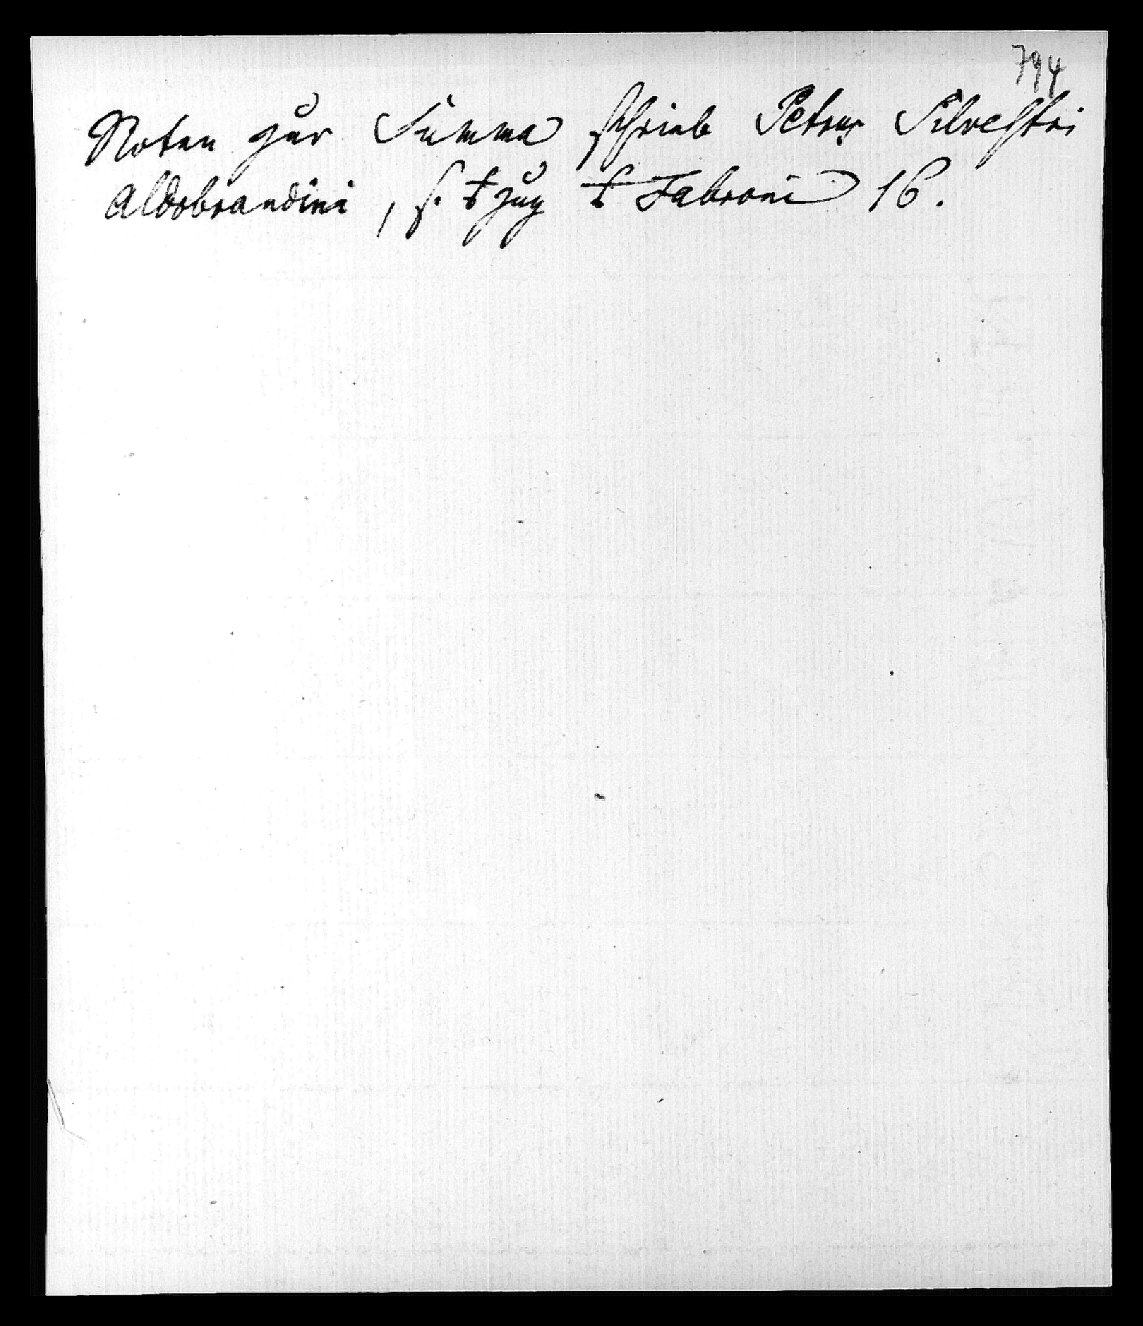 794
Noten zur Summa schrieb Petrus Silvestri
Aldobrandini, s. Fabroni 16.